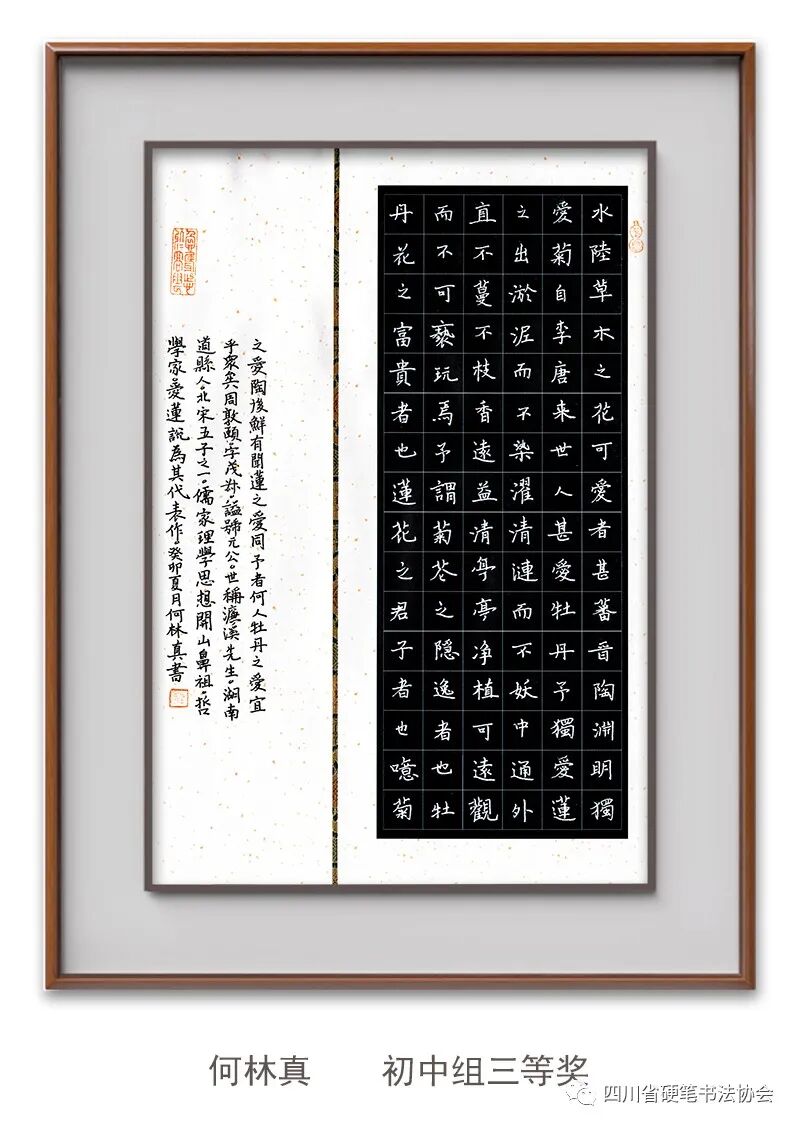 水陸草木之花可愛者甚蕃晉陶淵明獨
愛菊自李唐来世人甚愛牡丹予獨愛蓮
之出淤泥而不染濯清漣而不妖中通外
直不蔓不枝香遠益清亭亭净植可遠觀
而不可褻玩焉予謂菊花之隱逸者也牡
丹花之富貴者也蓮花之君子者也噫菊
之愛陶後鮮有聞蓮之愛同予者何人牡丹之愛宜
乎眾矣周敦頤。字茂叔。諡號元公。世稱濂溪先生。湖南
道縣人。北宋五子之一。儒家理學思想開山鼻祖。哲
學家。愛蓮說為其代表作。癸卯夏月何林真書
何林真 初中组三等奖
四川省硬笔书法协会